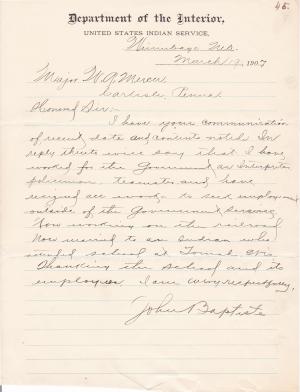 45.
Department of the Interior,
UNITED STATES INDIAN SERVICE,
Winnebago Neb.
March 19, 1907
Major W. A. Mercer
Carlisle, Penna
Honored Sir:-
I have your communication
of recent date and contents noted. In
reply thereto will say that I have
worked for the Government as Interpreter
policeman, teamster and have
resigned all work to seek employment
outside of the Government Service.
Now working on the railroad
Now married to an Indian who
attended school at Tomah, Wis.
Thanking the school and its
employees I am very respectfully,
John Baptiste